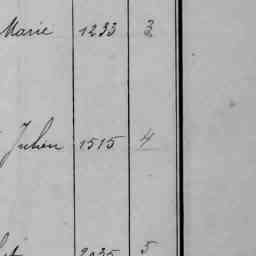 Marie 1233 3
Julien 1515 4
2035 5